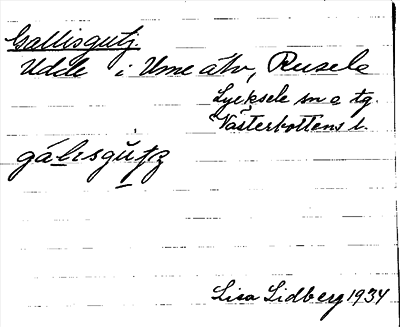 Gallisgutj.
Udde i Ume älv, Rusele
Lycksele sn o tg.
Västerbottens l.
gáhsgut̨z
Lisa Lidberg 1934